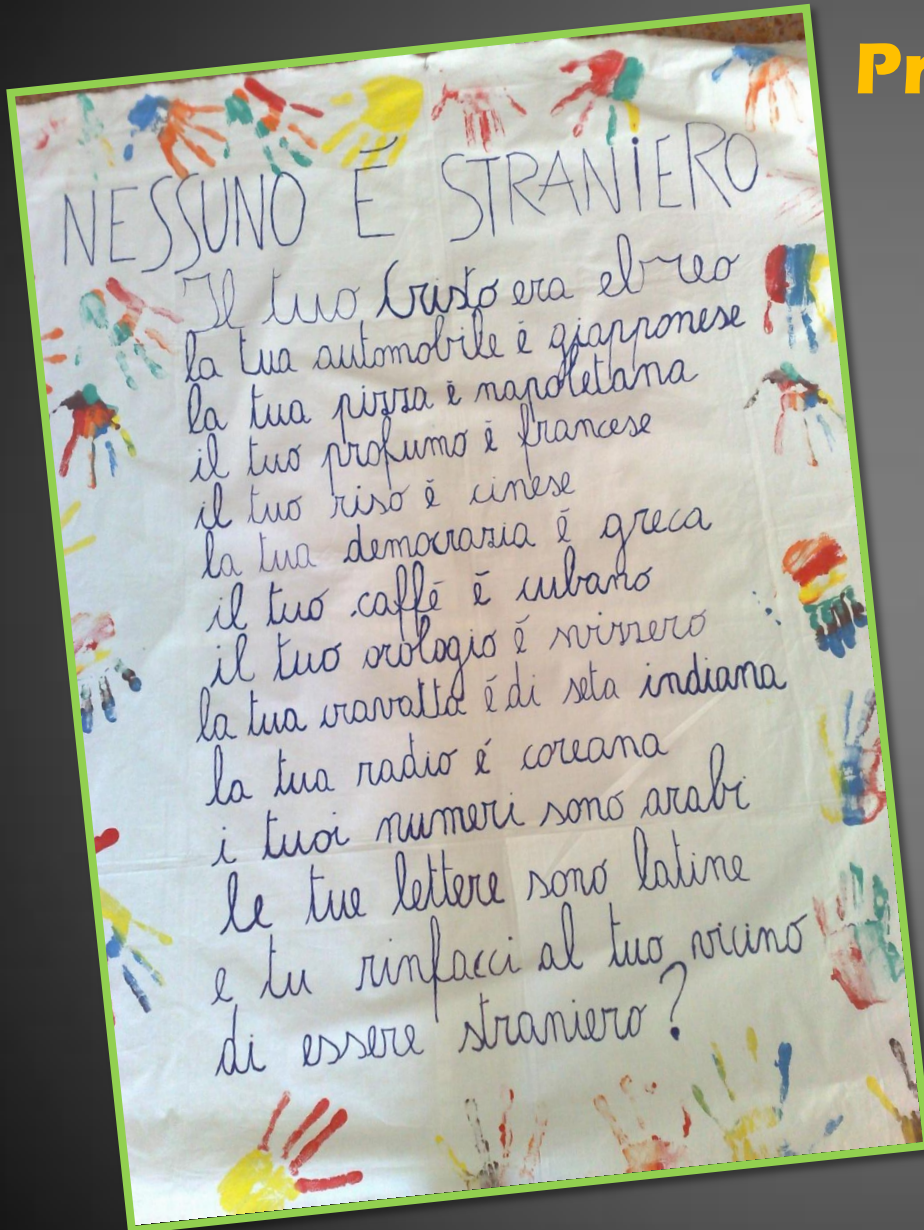 Pr
NESSUNO É STRANiERO
Il tuo Cristo era ebreo
la tua automobile è giapponese
la tua pizza è napoletana
il tuo profumo è francese
il tuo riso è cinese
la tua democrazia è greca
il tuo caffé è cubano
il tuo orologio é svizzero
la tua cravatta é di seta indiana
la tua radio é coreana
i tuoi numeri sono arabi
le tue lettere sono latine
e tu rinfacci al tuo vicino
di essere straniero?